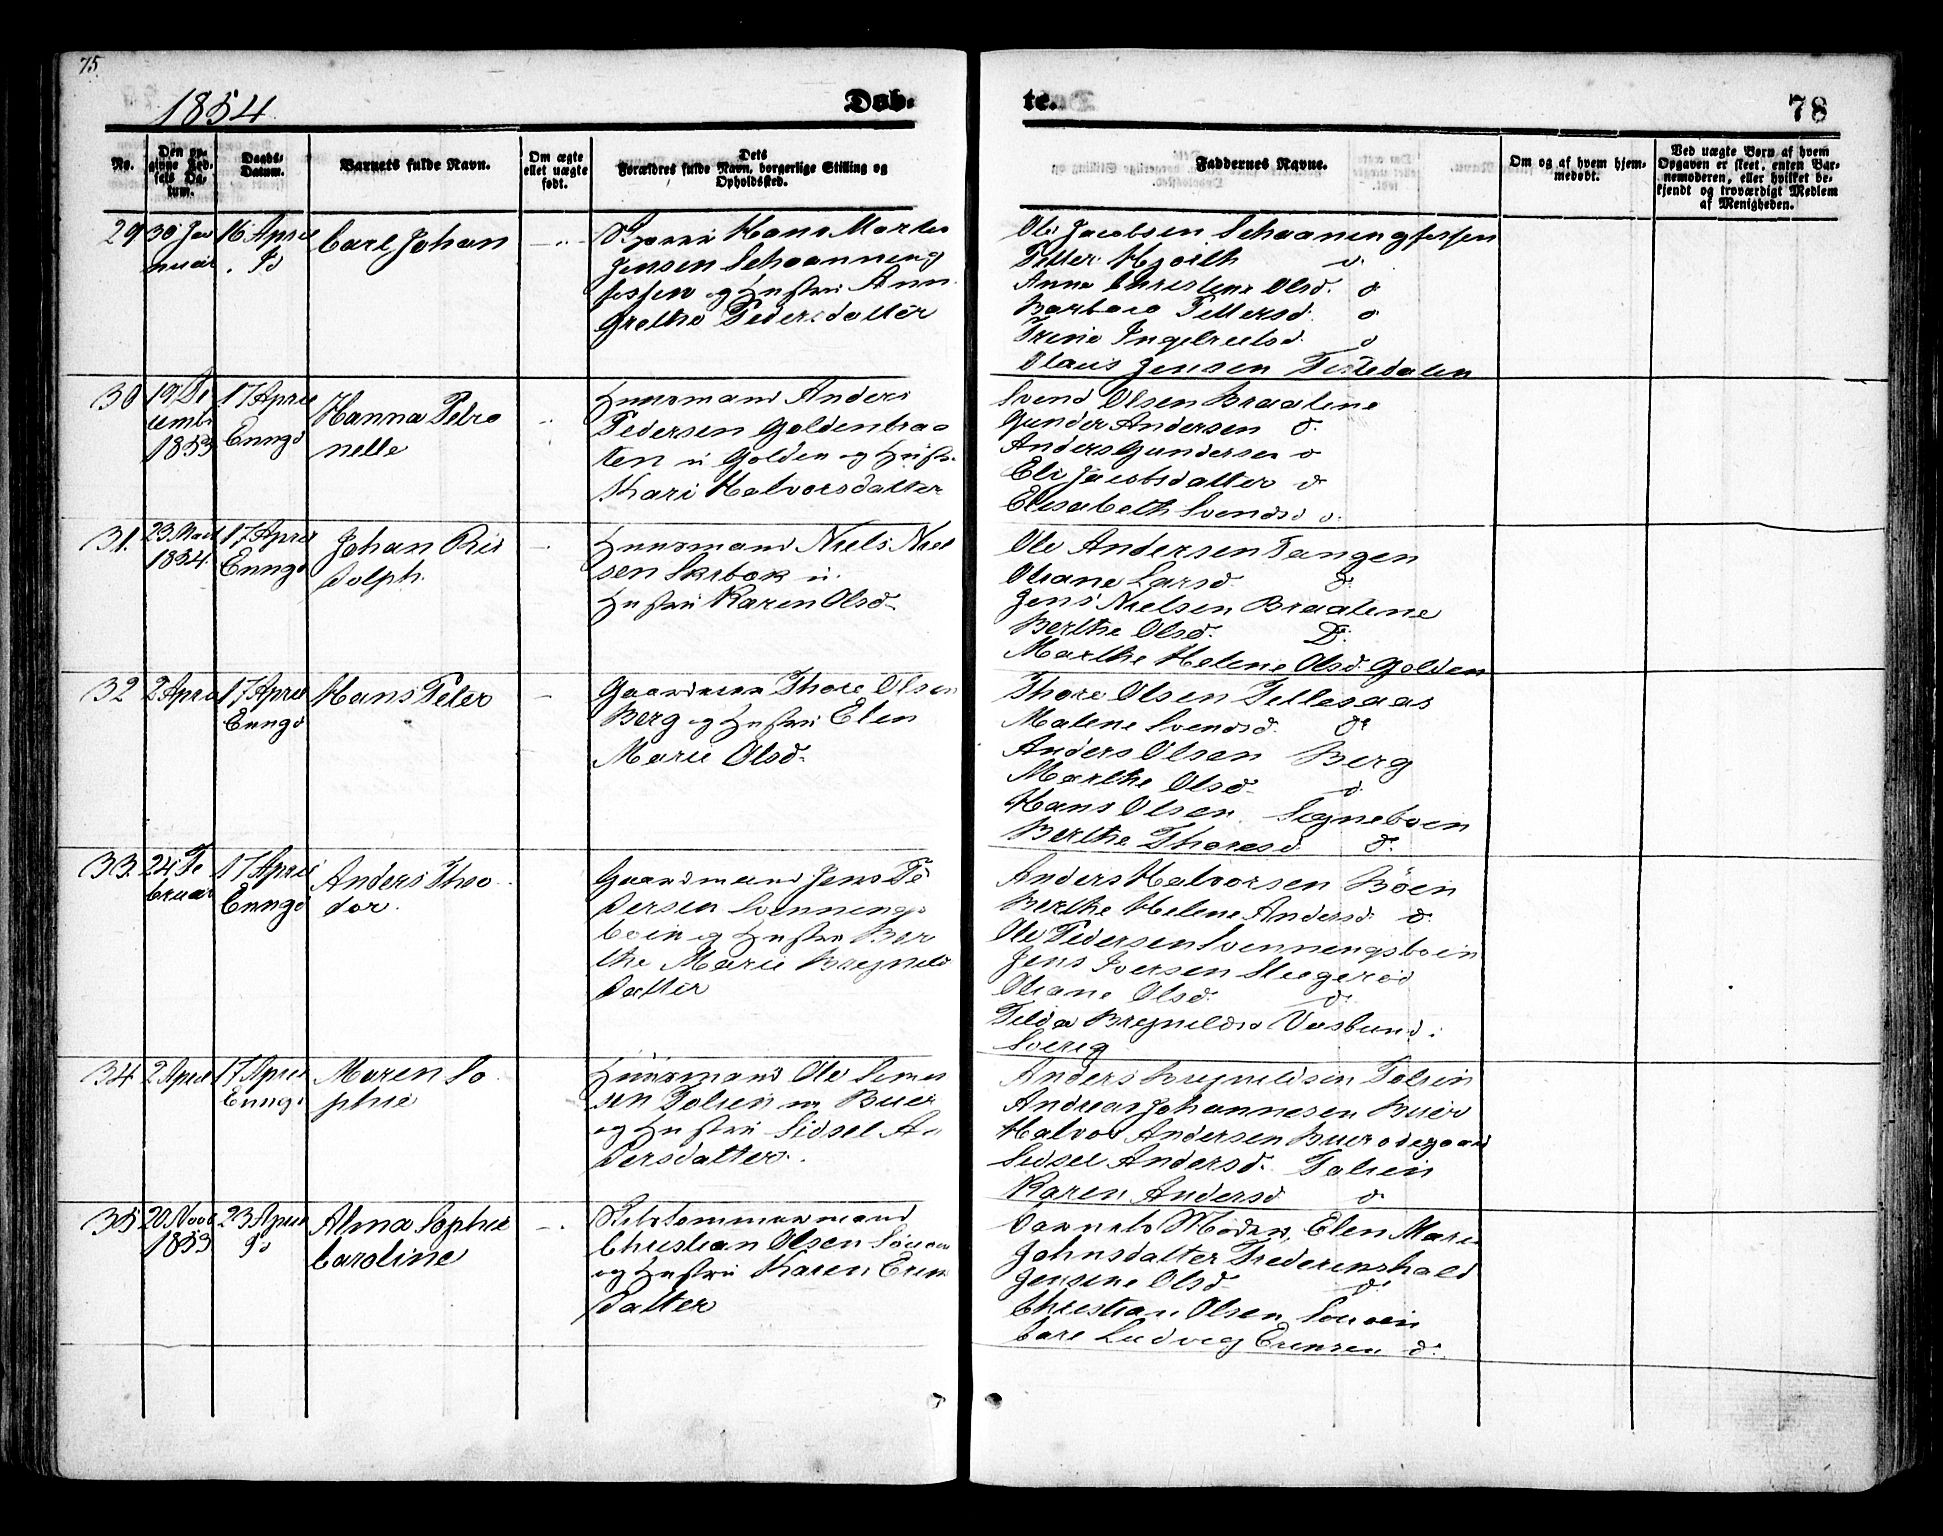 75.
1854
Døb-
te.
78
No.
Den op-
givne Fød-
sels Da-
tum.
Daabs-
Datum.
Barnets fulde Navn.
Om ægte
ellet uægte
født.
Dets
Forældres fulde Navn, borgerlige Stilling og
Opholdssted.
Faddernes Navne.
Om og af hvem hjem-
medøbt.
Ved uægte Børn af hvem
Opgaven er skeet, enten Bar-
nemoderen, eller hvilket be-
kjendt og troværdigt Medlem
af Menigheden.
29
30 Ja
nuar
16 April
Carl Johan
Hans Martin
Jensen Schaanning
fossen og Hustru Ann
Grethe Pedersdatter
Ole Jacobsen Schaaningfossen
Petter Hjorth d
Anne Christine Olsd. d
Barbara Pettersd. d
Trine Ingebretsd d
Olaus Jensen Tistedalen
30
19 De
cembr
1853
17 April
Enngd
Hanna Petro
nelle
Huusmand Anders
Pedersen Goldenbraa
ten u Golden og Hustr.
Kari Halvorsdatter
Svend Olsen Braatene
Gunder Andersen d.
Anders Gundersen d
Eli Jacobsdatter d
Elisabeth Svendsd d.
31.
23 Mart
1854.
17 April
Enngd
Johan Ru
dolph.
Huusmand Niels Niel
sen Skrbæk u.
Hustru Karen Olsd.
Ole Andersen Tangen
Oliane Larsd. d.
Jens Nielsen Braatene
Berthe Olsd. D.
Marthe Helene Olsd. Golden
32
2 April
17 April
Enngd
Hans Peter
Gaardman Thore Olsen
Berg og Hustru Elen
Marie Olsd.
Thore Olsen Tellesaas
Malene Svendsd. d.
Anders Olsen Berg
Marthe Olsd. d.
Hans Olsen Signeboen
Berthe Thoresd. d.
33.
24 Fe
bruar
17 April
Enngd
Anders Theo
dor.
Gaardmand Jens Pe
dersen Svennings
boen og Hustru Ber
the Marie Brynilds
datter
Anders Halvorsen Böen
Berthe Helene Andersd. d.
Ole Pedersen Svenningsboen
Jens Iversen Stegerød
Oliane Olsd. d.
Tilda Brynildsd
Sverig
34
2 April
17 April
Enngd
Maren So
phie
Huusmand Ole Simen
sen Tolsen u Buer
og Hustru Sidsel An
dersdatter.
Anders Brynildsen Tolsen
Andreas Johannesen Buer
Halvor Andersen Buerødegaard
Sidsel Andersd. Tolsen
Karen Andersd d
35
20 Novb
1853
23 April
Alma Sophie
Caroline
Christian Olsen
og Hustru Karen
datter
Barnets Moder, Elen Marie
Johnsdatter Frederikshald
Jensine Olsd. d.
Christian Olsen
Carl Ludvig d.